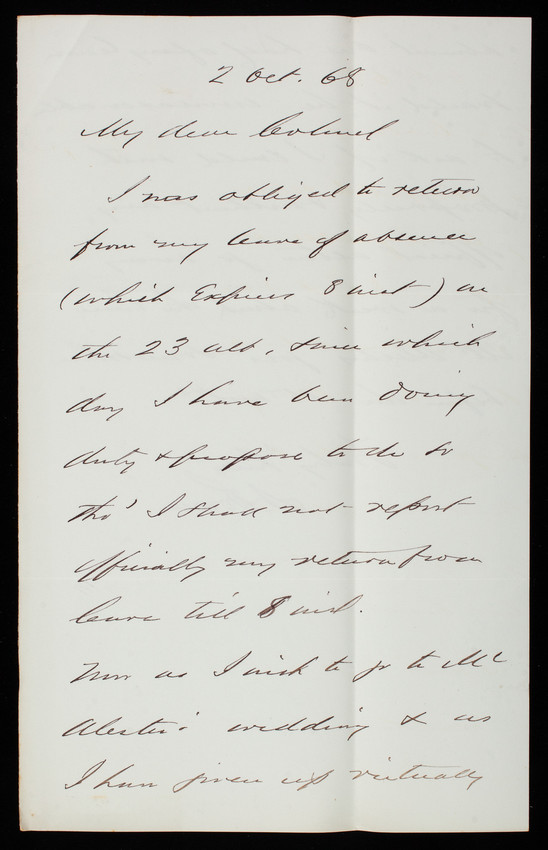 2 Oct. 68
My dear Colonel
I was obliged to return
from my leave of absence
(which Expires 8 inst) on
the 23 ult, since which
day I have been doing
duty & propose to do so
tho' I shall not report
officially my return from
leave till 8 inst.
Now as I wish to go to Mc
Alester's wedding & as
I have given up virtually